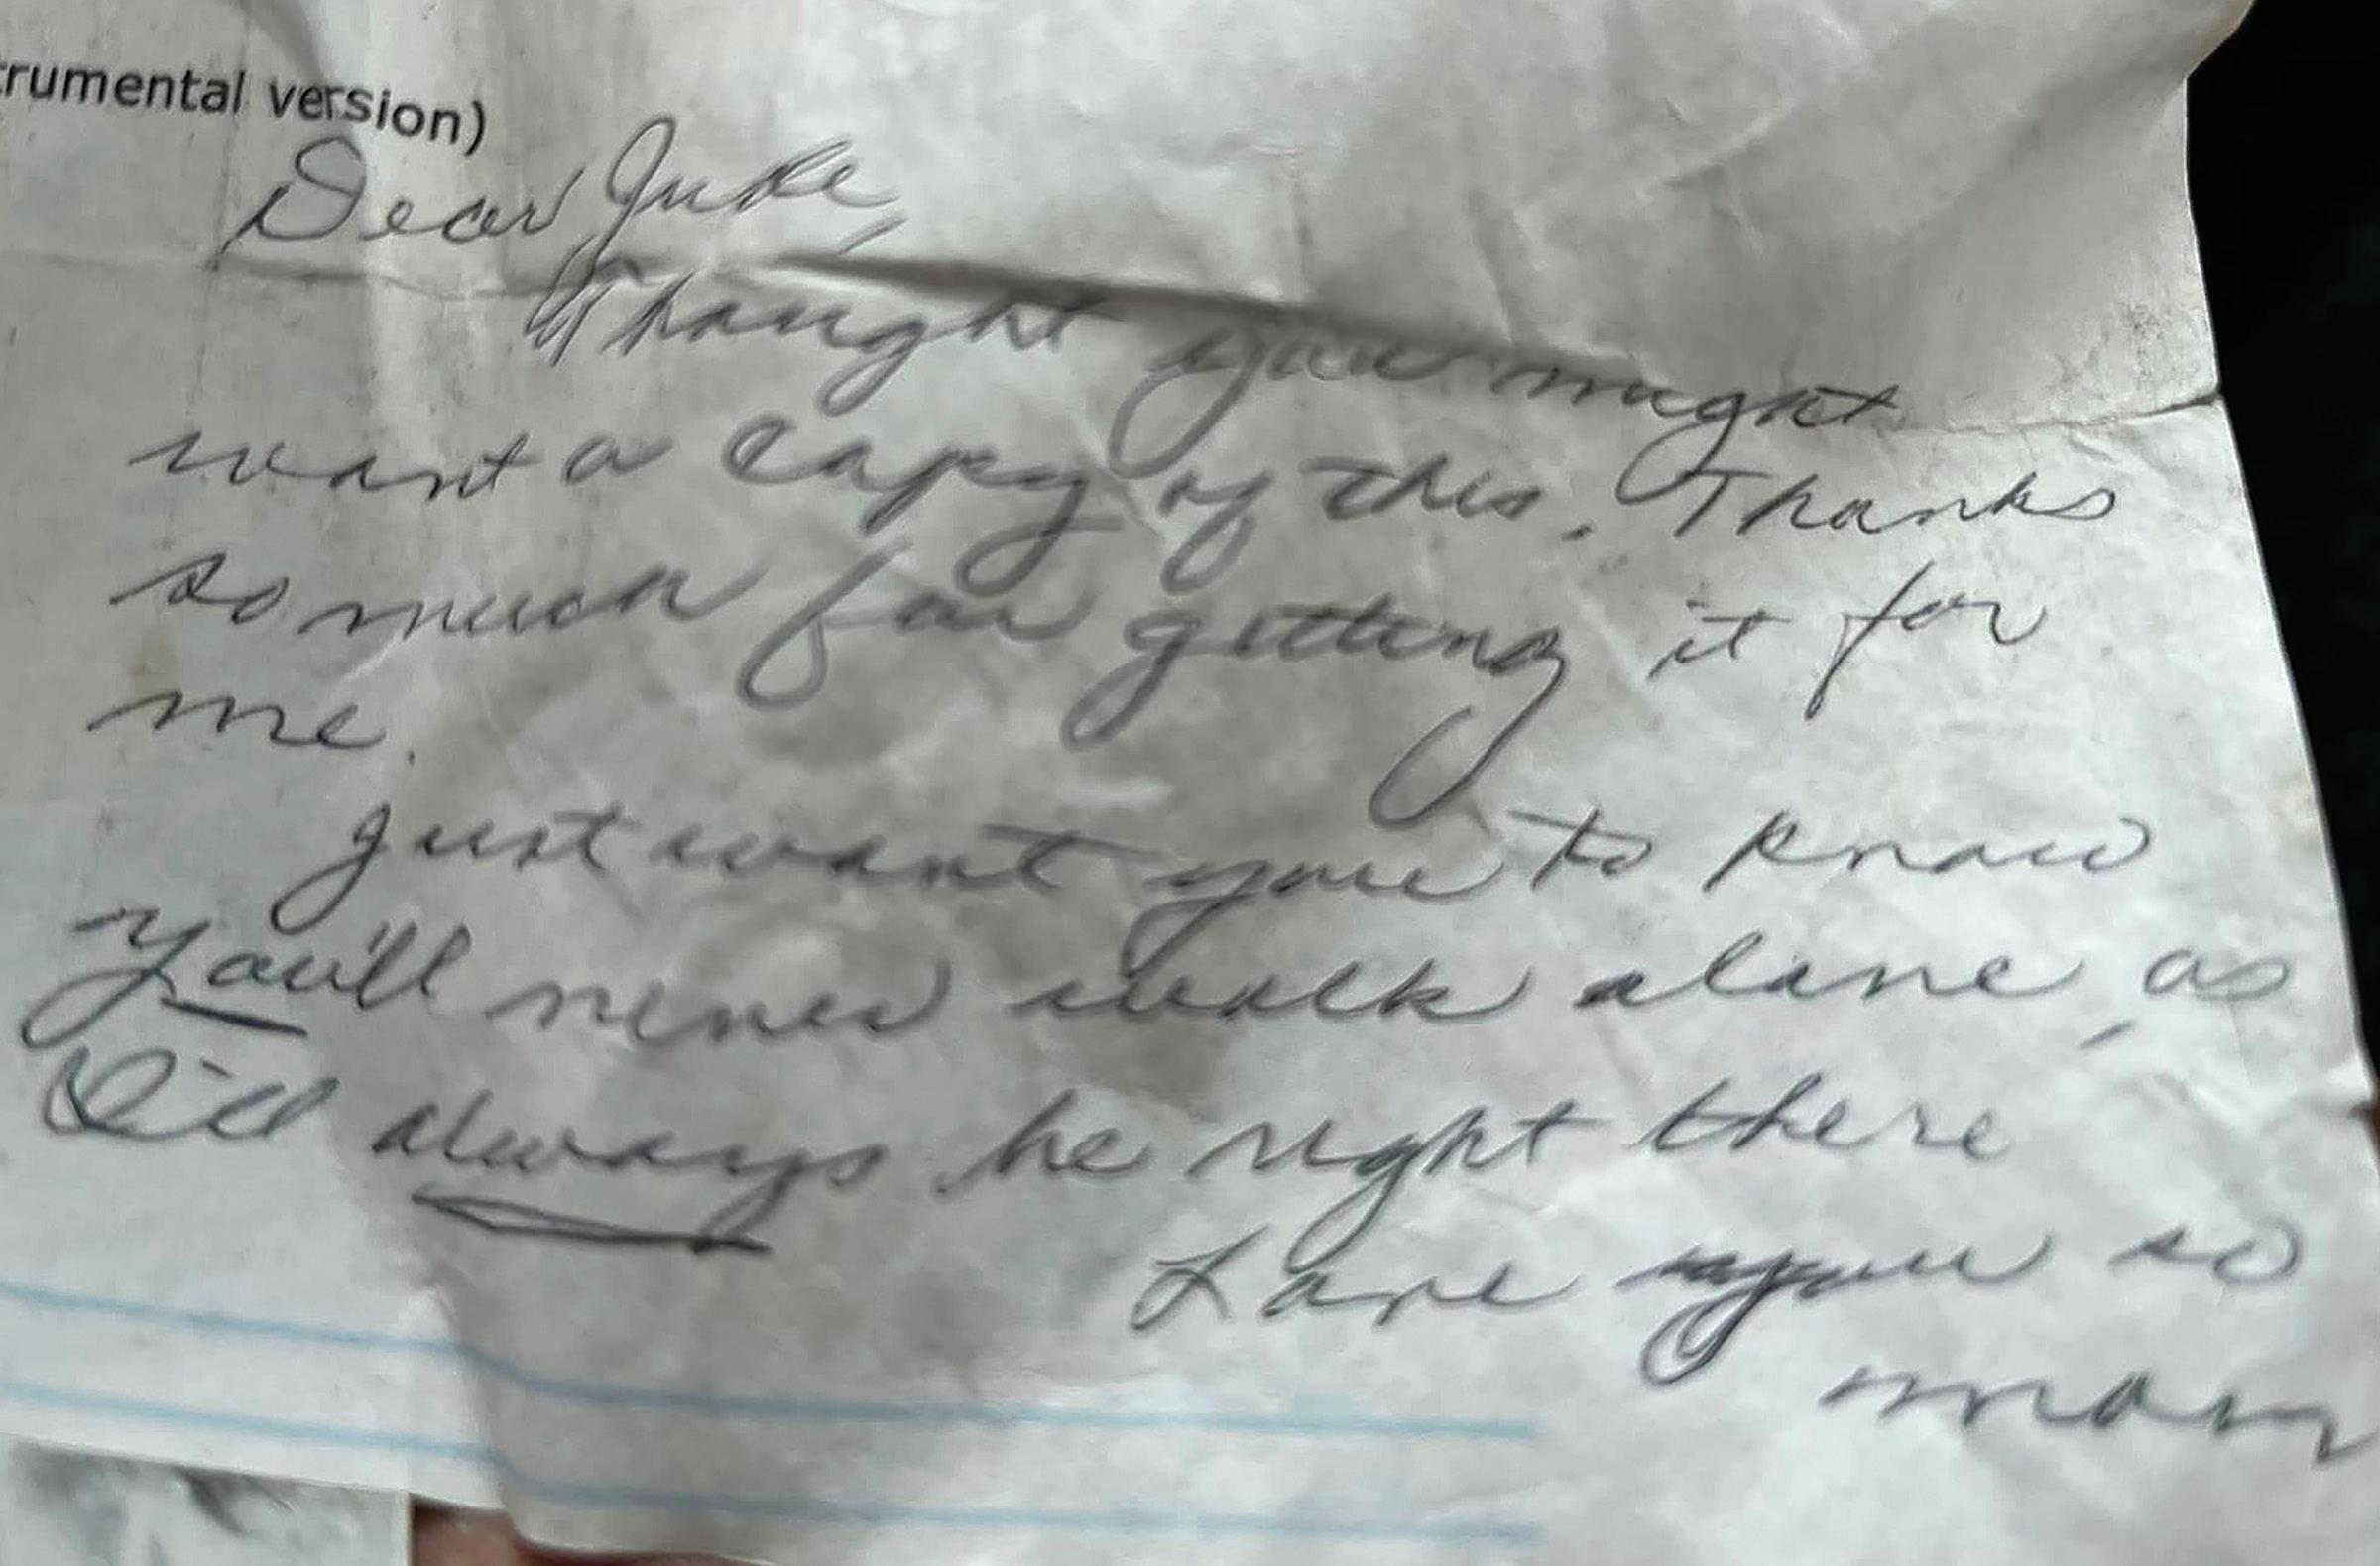 trumental version)
Dear Jude,
Thought you might
want a copy of this. Thanks
so much for getting it for
me.
Just want you to know
you'll never walk alone, as
I'll always be right there
Love you so
mom